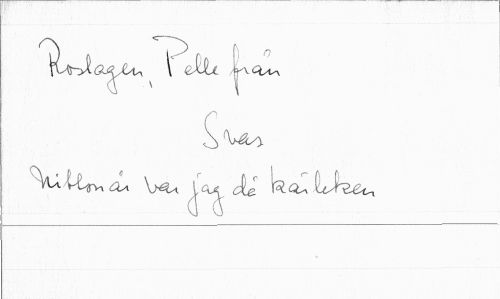 Roslagen, Pelle från
Svar
Nitton år var jag då kärleken